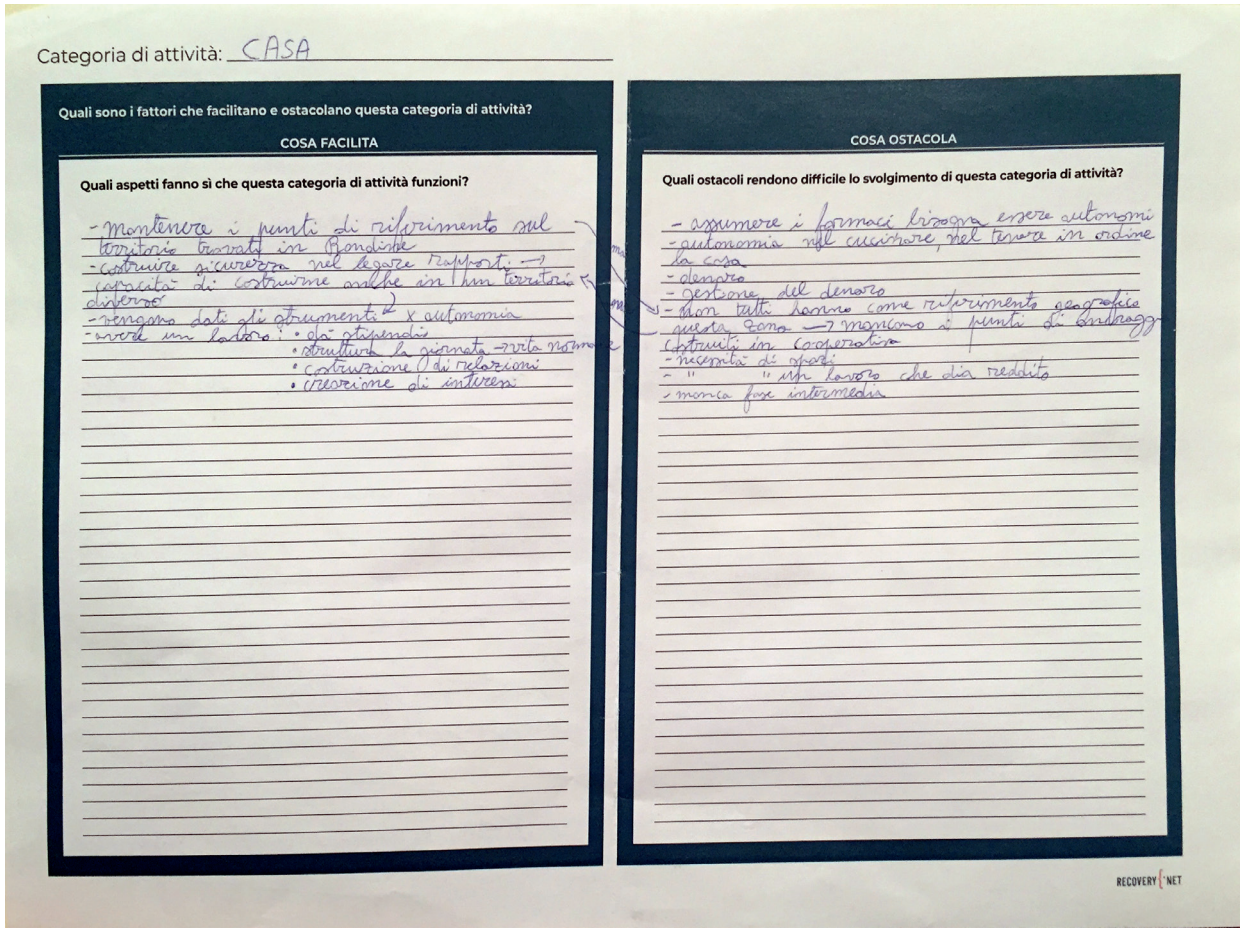 Categoria di attività: CASA
Quali sono i fattori che facilitano e ostacolano questa categoria di attività?
COSA FACILITA
Quali aspetti fanno sì che questa categoria di attività funzioni?
- Mantenere i punti di riferimento sul
territorio trovati in
- costruire sicurezza nel legare rapporti →
capacità di costruirne anche in un territorio
diverso
- vengono dati gli strumenti x autonomia
- avere un lavoro: • dà stipendio
• struttura la giornata → vita normale
• costruzione di relazioni
• creazione di interessi
COSA OSTACOLA
Quali ostacoli rendono difficile lo svolgimento di questa categoria di attività?
- assumere i farmaci bisogna essere autonomi
- autonomia nel cucinare, nel tenere in ordine
la casa
- denaro
- gestione del denaro
- Non tutti hanno come riferimento geografico
questa zona → mancano i punti di ancoraggio
costruiti in cooperativa
- necessità di spazi
- " " un lavoro che dia reddito
- manca fase intermedia
RECOVERY NET